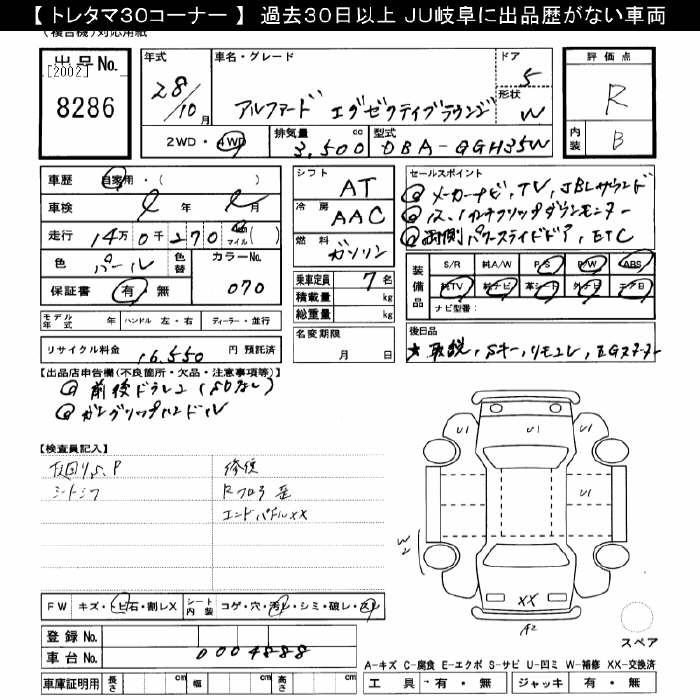 【トレタマ30コーナー】 過去30日以上 JU岐阜に出品歴がない車両
(複合機)対応用紙
出品No.
[2002]
8286
年式 28/10月
車名・グレード アルファード エグゼクティブラウンジ
ドア 5
形状 W
2WD・4WD
排気量 3,500 cc
型式 DBA-GGH35W
評価点 R
内装 B
車歴 自家用・( )
車検 年 月
走行 14万0千270 km マイル( )
色 パール 色替 カラーNo. 070
保証書 有・無
モデル年式 年 ハンドル 左・右 ディーラー・並行
リサイクル料金 16,550 円 預託済
シフト AT
冷房 AAC
燃料 ガソリン
乗車定員 7名
積載量 kg
総重量 kg
名変期限 月 日
セールスポイント
◎メーカーナビ,TV,JBLサウンド
フリップダウンモニター
◎両側パワースライドドア,ETC
装備品
S/R 純A/W P/S P/W ABS
純TV 純ナビ 革シート 外ナビ エアB
ナビ型番:
後日品
★取説,Sキー,リモコン,
【出品店申告欄(不良箇所・欠品・注意事項等)】
◎前後ドラレコ(SDなし)
◎ガングリップハンドル
【検査員記入】
修復
シートシワ
Rフロア歪
エンドパネルXX
FW キズ・トビ石・割レX
シート内装 コゲ・穴・汚レ・シミ・破レ・スレ
登録No.
車台No. 0004888
車庫証明用 長さ cm 幅 cm 高さ cm
U1
U1
U1
W2
XX
A2
スペア
A-キズ C-腐食 E-エクボ S-サビ U-凹ミ W-補修 XX-交換済
工具 有・無 ジャッキ 有・無